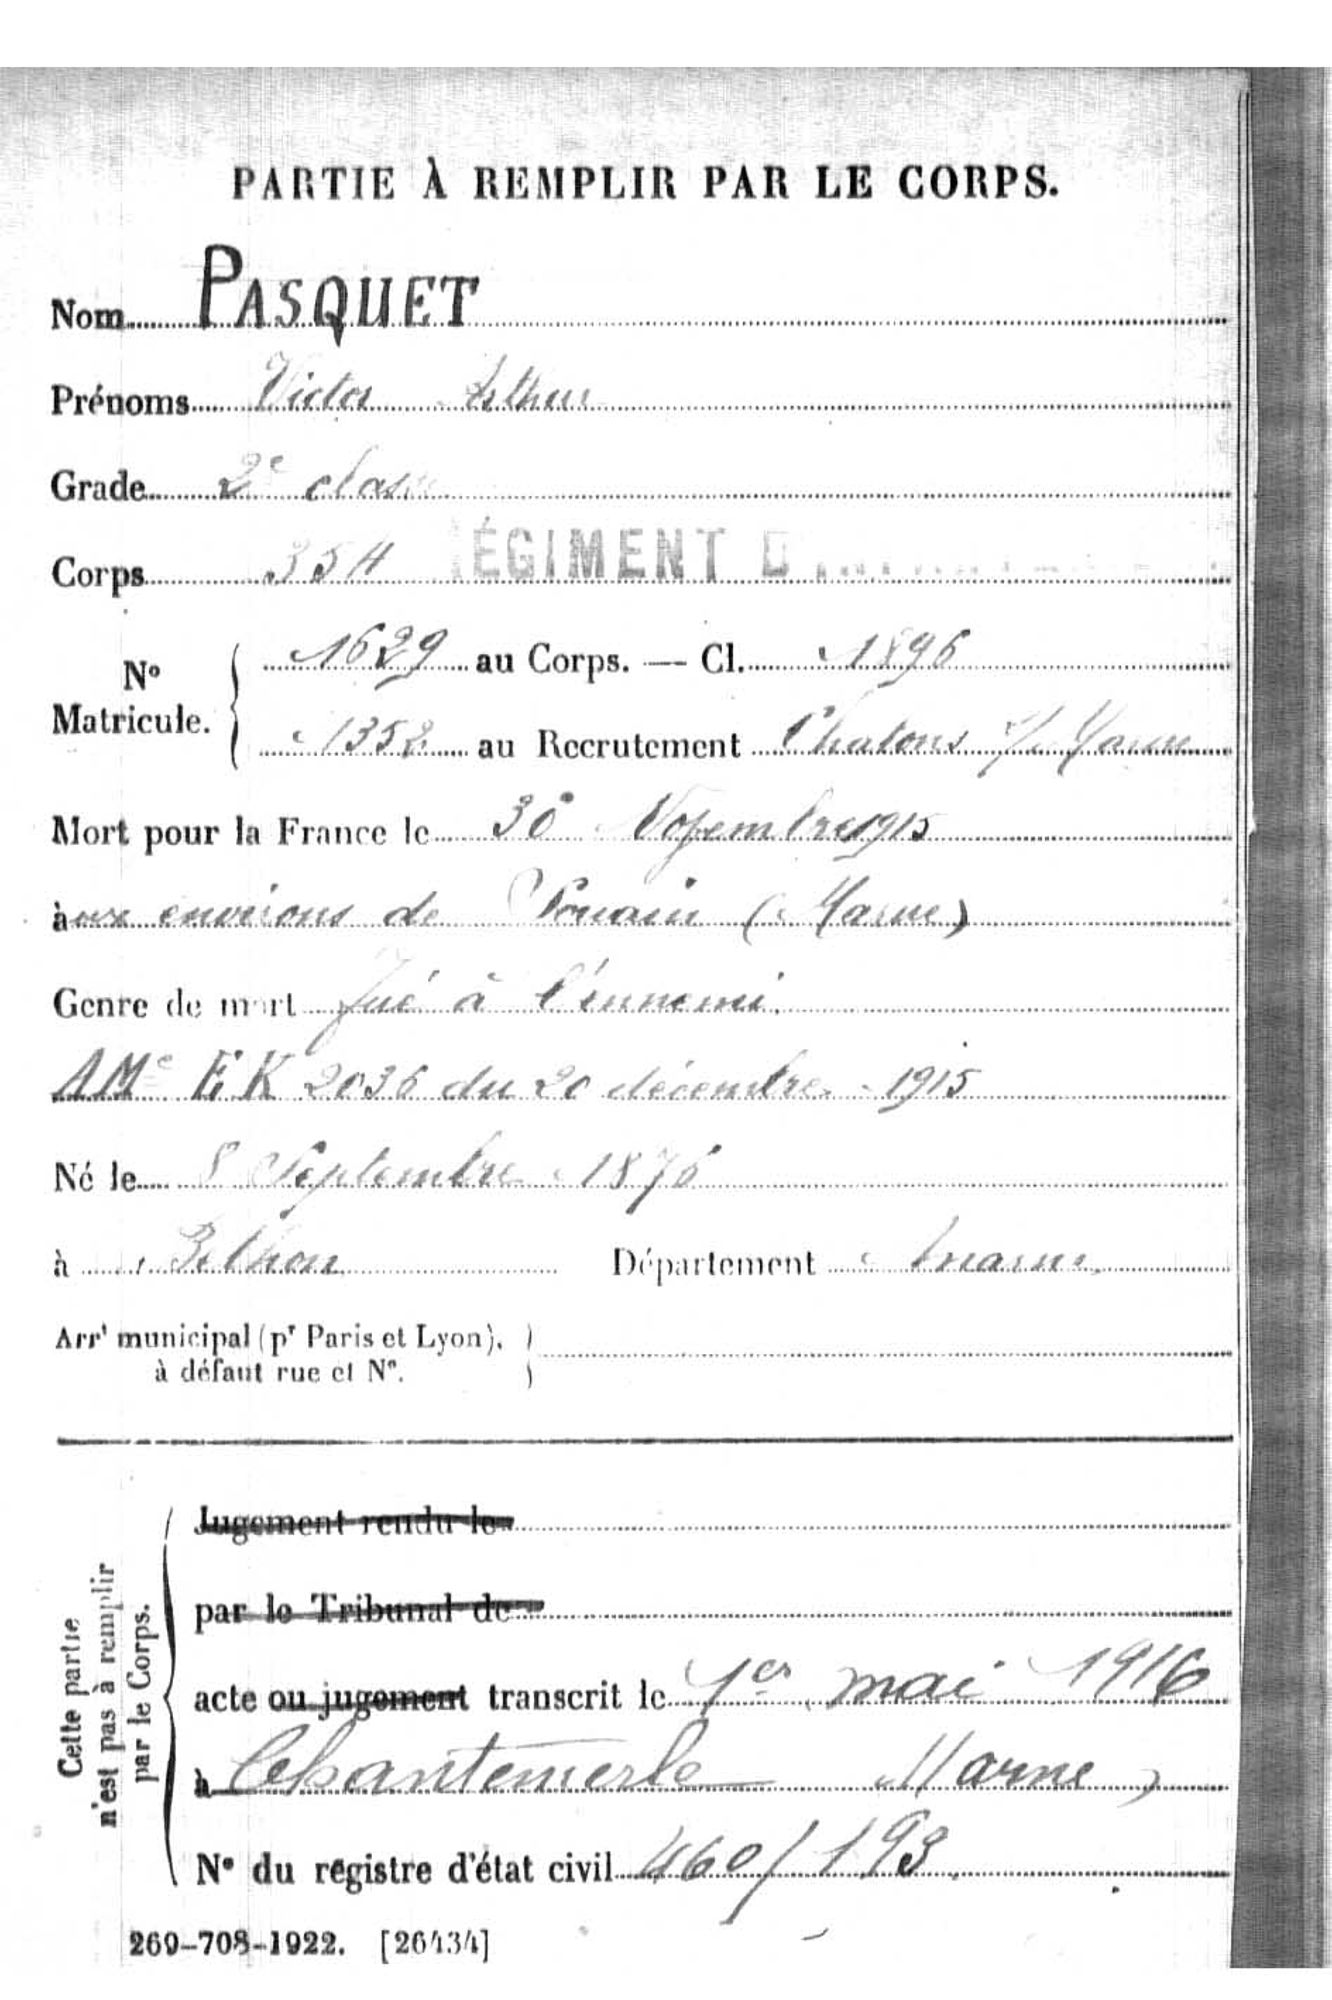 PARTIE À REMPLIR PAR LE CORPS.
Nom PASQUET
Prénoms Victor Arthur
Grade 2e classe
Corps 354 RÉGIMENT D'INFANTERIE
No Matricule. 1629 au Corps. — Cl. 1896
1352 au Recrutement Chalons s/ Marne
Mort pour la France le 30 Novembre 1915
à aux environs de Prouain (Marne)
Genre de mort Tué à l'ennemi.
AMe EK 2036 du 20 décembre 1915
Né le 8 Septembre 1876
à Béthon Département Marne
Arrt municipal (pr Paris et Lyon),
à défaut rue et No.
Cette partie n'est pas à remplir par le Corps.
Jugement rendu le
par le Tribunal de
acte ou jugement transcrit le 1er mai 1916
à Chantemerle Marne
No du registre d'état civil 460/193
269-708-1922. [26434]